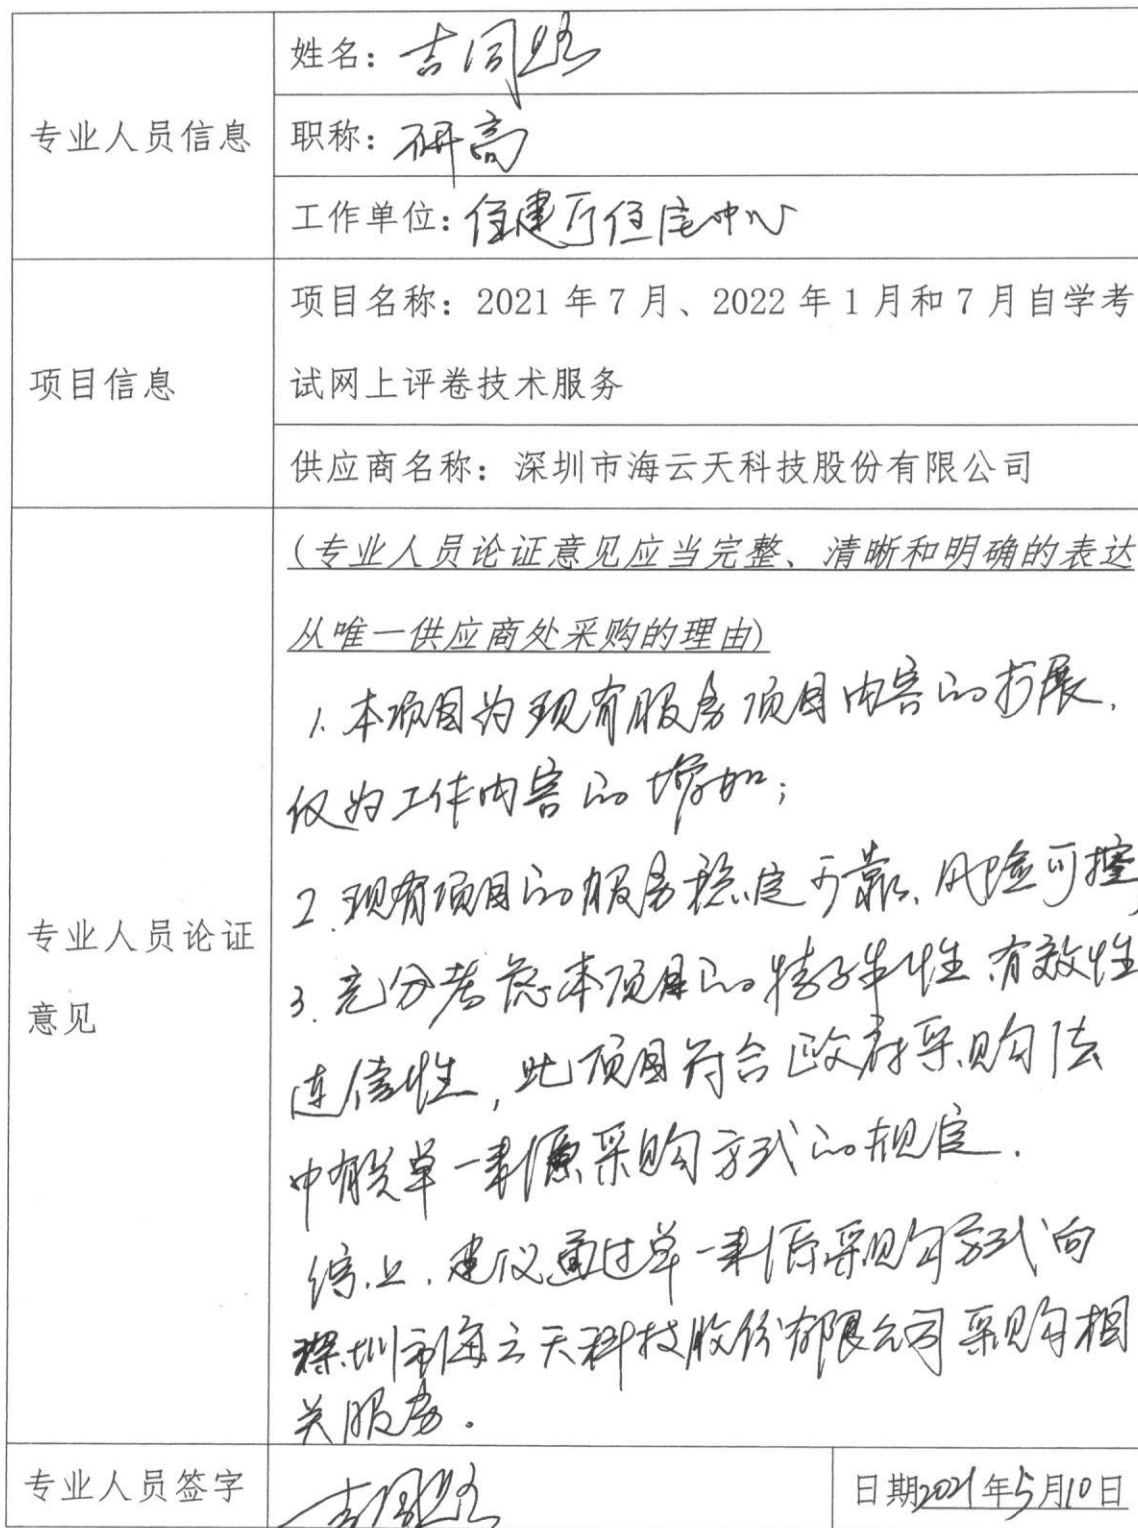 专业人员信息
姓名：吉同路
职称：研高
工作单位：住建厅住宅中心
项目信息
项目名称：2021 年 7 月、2022 年 1 月和 7 月自学考
试网上评卷技术服务
供应商名称：深圳市海云天科技股份有限公司
专业人员论证
意见
(专业人员论证意见应当完整、清晰和明确的表达
从唯一供应商处采购的理由)
1. 本项目为现有服务项目内容的扩展，
仅为工作内容的增加；
2. 现有项目的服务稳定可靠、风险可控，
3. 充分考虑本项目的特殊性 有效性
连续性，此项目符合政府采购法
中有关单一来源采购方式的规定.
综上，建议通过单一来源采购方式向
深圳市海云天科技股份有限公司采购相
关服务.
专业人员签字
吉同路
日期2021年5月10日